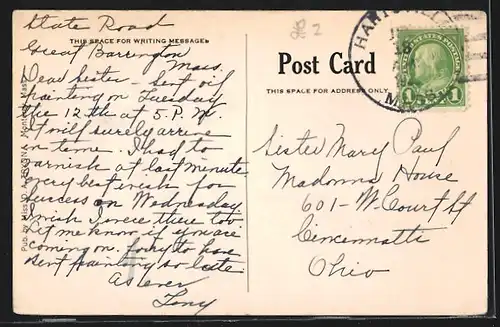 State Road
THIS SPACE FOR WRITING MESSAGES
Great Barrington
Mass.
Dear Sister - Sent oil
painting on Tuesday
the 12th at 5 P.M.
It will surely arrive
in time. I had to
varnish at last minute
every best wish for
success on Wednesday
I wish I were there too
Let me know if you are
coming on. Sorry to have
sent painting so late
As ever
Tony
Pub. by Miss D. A.
Post Card
THIS SPACE FOR ADDRESS ONLY
2
HARTSVILLE
MASS.
1
1
Sister Mary Paul
Madonna House
601 - W. Court St
Cincinnatti
Ohio